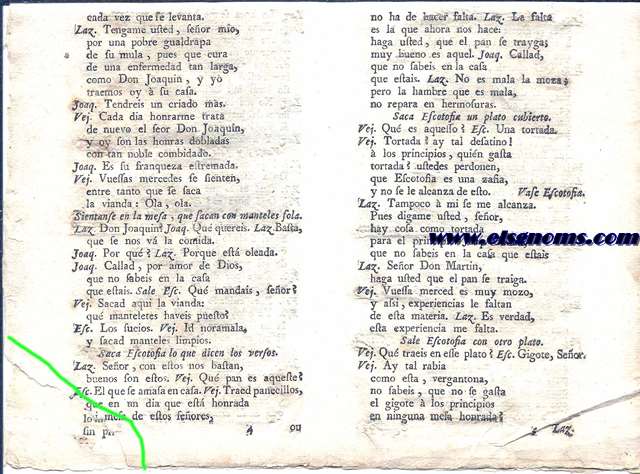 cada vez que se levanta.
Laz. Tengame usted, señor mio,
por una pobre gualdrapa
de su mula, pues que cura
de una enfermedad tan larga,
como Don Joaquin, y yo
traemos oy à su casa.
Joaq. Tendreis un criado mas.
Vej. Cada dia honrarme trata
de nuevo el seor Don Joaquin,
y oy son las honras dobladas
con tan noble combidado.
Joaq. Es su franqueza estremada.
Vej. Vuessas mercedes se sienten,
entre tanto que se saca
la vianda: Ola, ola.
Sientanse en la mesa, que sacan con manteles sola.
Laz. Don Joaquin? Joaq. Què quereis. Laz. Basta,
que se nos và la comida.
Joaq. Por què? Laz. Porque està oleada.
Joaq. Callad, por amor de Dios,
que no sabeis en la casa
que estais. Sale Esc. Què mandais, señor?
Vej. Sacad aqui la vianda:
què manteletes haveis puesto?
Esc. Los sucios. Vej. Id noramala,
y sacad manteles limpios.
Saca Escotofia lo que dicen los versos.
Laz. Señor, con estos nos bastan,
buenos son estos. Vej. Què pan es aqueste?
Esc. El que se amasa en casa. Vej. Traed panecillos,
que en un dia que està honrada
mesa de estos señores,
sin
A
ou
no ha de hacer falta. Laz. La falta
es la que ahora nos hace:
haga usted, que el pan se trayga;
muy bueno es aquel. Joaq. Callad,
que no sabeis en la casa
que estais. Laz. No es mala la moza;
pero la hambre que es mala,
no repara en hermosuras.
Saca Escotofia un plato cubierto.
Vej. Què es aquesso? Esc. Una tortada.
Vej. Tortada? ay tal desatino!
à los principios, quièn gasta
tortada? ustedes perdonen,
que Escotofia es una zafia,
y no se le alcanza de esto. Vase Escotofia.
Laz. Tampoco à mi se me alcanza.
Pues digame usted, señor,
hay cosa como tortada
para el
www.elsgnoms.com
que no sabeis en la casa que estais
Laz. Señor Don Martin,
haga usted que el pan se traiga.
Vej. Vuessa merced es muy mozo,
y assi, experiencias le faltan
de esta materia. Laz. Es verdad,
esta experiencia me falta.
Sale Escotofia con otro plato.
Vej. Què traeis en esse plato? Esc. Gigote, Señor.
Vej. Ay tal rabia
como esta, vergantona,
no sabeis, que no se gasta
el gigote à los principios
en ninguna mesa honrada?
Laz.